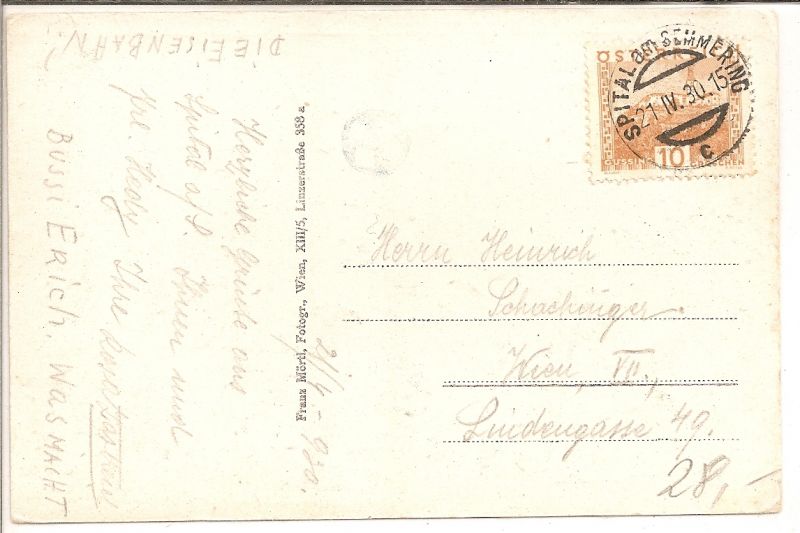 Herzliche Grüße aus
Spital a/S. Ihnen und
Frl. Hedy Ihre
BUSSI ERICH. WAS MACHT
DIE EISENBAHN?
21/4 - 930.
Franz Mörtl, Fotogr., Wien, XIII/5, Linzerstraße 358 a
ÖSTERREICH
10
SPITAL am SEMMERING
21.IV.30.15
c
Herrn Heinrich
Schachinger
Wien, VII.,
Lindengasse 49.
28,-